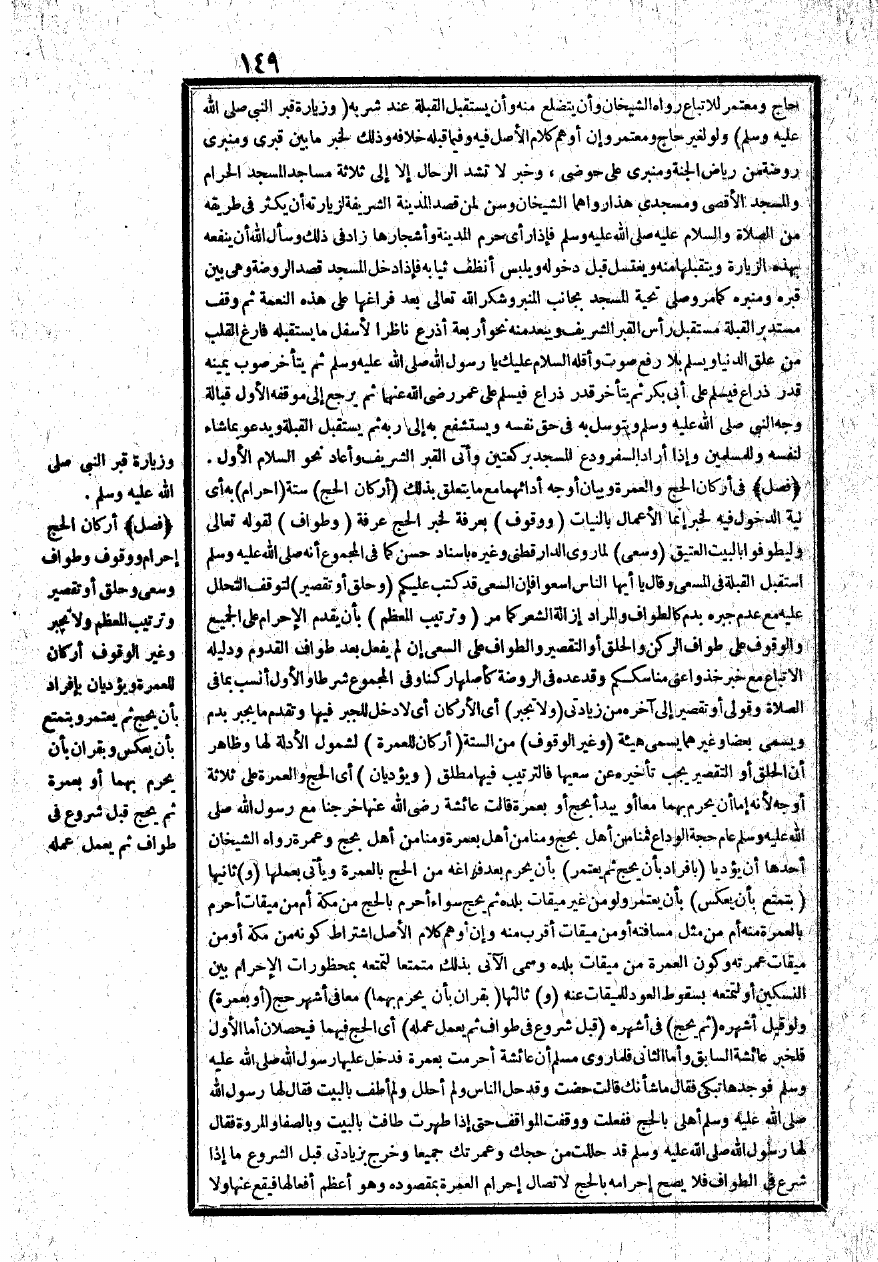 ١٤٩
حاج ومعتمر للاتباع رواه الشيخان وأن يتضلع منه وأن يستقبل القبلة عند شربه ( وزيارة قبر النبي صلى الله
عليه وسلم ) ولو لغير حاج ومعتمر وإن أوهم كلام الأصل فيه وفيما قبله خلافه وذلك لخبر ما بين قبرى ومنبرى
روضة من رياض الجنة ومنبرى على حوضى ، وخبر لا تشد الرحال إلا إلى ثلاثة مساجد المسجد الحرام
والمسجد الأقصى ومسجدى هذا رواهما الشيخان وسن لمن قصد المدينة الشريفة لزيارته أن يكثر فى طريقه
من الصلاة والسلام عليه صلى الله عليه وسلم فإذا رأى حرم المدينة وأشجارها زاد فى ذلك وسأل الله أن ينفعه
بهذه الزيارة ويتقبلها منه ويغتسل قبل دخوله ويلبس أنظف ثيابه فإذا دخل المسجد قصد الروضة وهى بين
قبره ومنبره كما مر وصلى تحية المسجد بجانب المنبر وشكر الله تعالى بعد فراغها على هذه النعمة ثم وقف
مستدبر القبلة مستقبل رأس القبر الشريف ويبعد منه نحو أربعة أذرع ناظرا لأسفل ما يستقبله فارغ القلب
من علق الدنيا ويسلم بلا رفع صوت وأقله السلام عليك يا رسول الله صلى الله عليه وسلم ثم يتأخر صوب يمينه
قدر ذراع فيسلم على أبى بكر ثم يتأخر قدر ذراع فيسلم على عمر رضى الله عنهما ثم يرجع إلى موقفه الأول قبالة
وجه النبي صلى الله عليه وسلم ويتوسل به فى حق نفسه ويستشفع به إلى ربه ثم يستقبل القبلة ويدعو بما شاء
لنفسه وللمسلمين وإذا أراد السفر ودع المسجد بركعتين وأتى القبر الشريف وأعاد نحو السلام الأول .
﴿فصل﴾ فى أركان الحج والعمرة وبيان أوجه أدائهما مع ما يتعلق بذلك (أركان الحج) ستة (إحرام) به أى
نية الدخول فيه لخبر إنما الأعمال بالنيات ( ووقوف ) بعرفة لخبر الحج عرفة ( وطواف ) لقوله تعالى
وليطوفوا بالبيت العتيق (وسعى) لما روى الدارقطنى وغيره بإسناد حسن كما فى المجموع أنه صلى الله عليه وسلم
استقبل القبلة فى المسعى وقال يا أيها الناس اسعوا فإن السعى قد كتب عليكم (وحلق أو تقصير) لتوقف التحلل
عليه مع عدم جبره بدم كالطواف والمراد إزالة الشعر كما مر ( وترتيب المعظم ) بأن يقدم الإحرام على الجميع
والوقوف على طواف الركن والحلق أو التقصير والطواف على السعى إن لم يفعل بعد طواف القدوم ودليله
الاتباع مع خبر خذوا عنى مناسككم وقد عده فى الروضة كأصلها ركنا وفى المجموع شرطا والأول أنسب بما فى
الصلاة وقولى أو تقصير إلى آخره من زيادتى (ولا تجبر) أى الأركان أى لا دخل للجبر فيها وتقدم ما يجبر بدم
ويسمى بعضا وغيرهما يسمى هيئة (وغير الوقوف) من الستة ( أركان للعمرة ) لشمول الأدلة لها وظاهر
أن الحلق أو التقصير يجب تأخيره عن سعيها فالترتيب فيها مطلق ( ويؤديان ) أى الحج والعمرة على ثلاثة
أوجه لأنه إما أن يحرم بهما معا أو يبدأ بحج أو بعمرة قالت عائشة رضى الله عنها خرجنا مع رسول الله صلى
الله عليه وسلم عام حجة الوداع فمنا من أهل بحج ومنا من أهل بعمرة ومنا من أهل بحج وعمرة رواه الشيخان
أحدها أن يؤديا (بإفراد بأن يحج ثم يعتمر) بأن يحرم بعد فراغه من الحج بالعمرة ويأتى بعملها (و) ثانيها
( بتمتع بأن يعكس ) بأن يعتمر ولو من غير ميقات بلده ثم يحج سواء أحرم بالحج من مكة أم من ميقات أحرم
بالعمرة منه أم من مثل مسافته أو من ميقات أقرب منه وإن أوهم كلام الأصل اشتراط كونه من مكة أو من
ميقات عمرته وكون العمرة من ميقات بلده وسمى الآتى بذلك متمتعا لتمتعه بمحظورات الإحرام بين
النسكين أو لتمتعه بسقوط العود للميقات عنه (و) ثالثها ( بقران بأن يحرم بهما ) معا فى أشهر حج (أو بعمرة)
ولو قبل أشهره (ثم يحج) فى أشهره (قبل شروع فى طواف ثم يعمل عمله) أى الحج فيهما فيحصلان أما الأول
فلخبر عائشة السابق وأما الثانى فلما روى مسلم أن عائشة أحرمت بعمرة فدخل عليها رسول الله صلى الله عليه
وسلم فوجدها تبكى فقال ما شأنك قالت حضت وقد حل الناس ولم أحلل ولم أطف بالبيت فقال لها رسول الله
صلى الله عليه وسلم أهلى بالحج ففعلت ووقفت المواقف حتى إذا طهرت طافت بالبيت وبالصفا والمروة فقال
لها رسول الله صلى الله عليه وسلم قد حللت من حجك وعمرتك جميعا وخرج بزيادتى قبل الشروع ما إذا
شرع فى الطواف فلا يصح إحرامه بالحج لاتصال إحرام العمرة بمقصوده وهو أعظم أفعالها فيقع عنها ولا
وزيارة قبر النبي صلى
الله عليه وسلم .
﴿فصل﴾ أركان الحج
إحرام ووقوف وطواف
وسعى وحلق أو تقصير
وترتيب المعظم ولا تجبر
وغير الوقوف أركان
للعمرة ويؤديان بإفراد
بأن يحج ثم يعتمر وبتمتع
بأن يعكس وبقران بأن
يحرم بهما أو بعمرة
ثم يحج قبل شروع فى
طواف ثم يعمل عمله